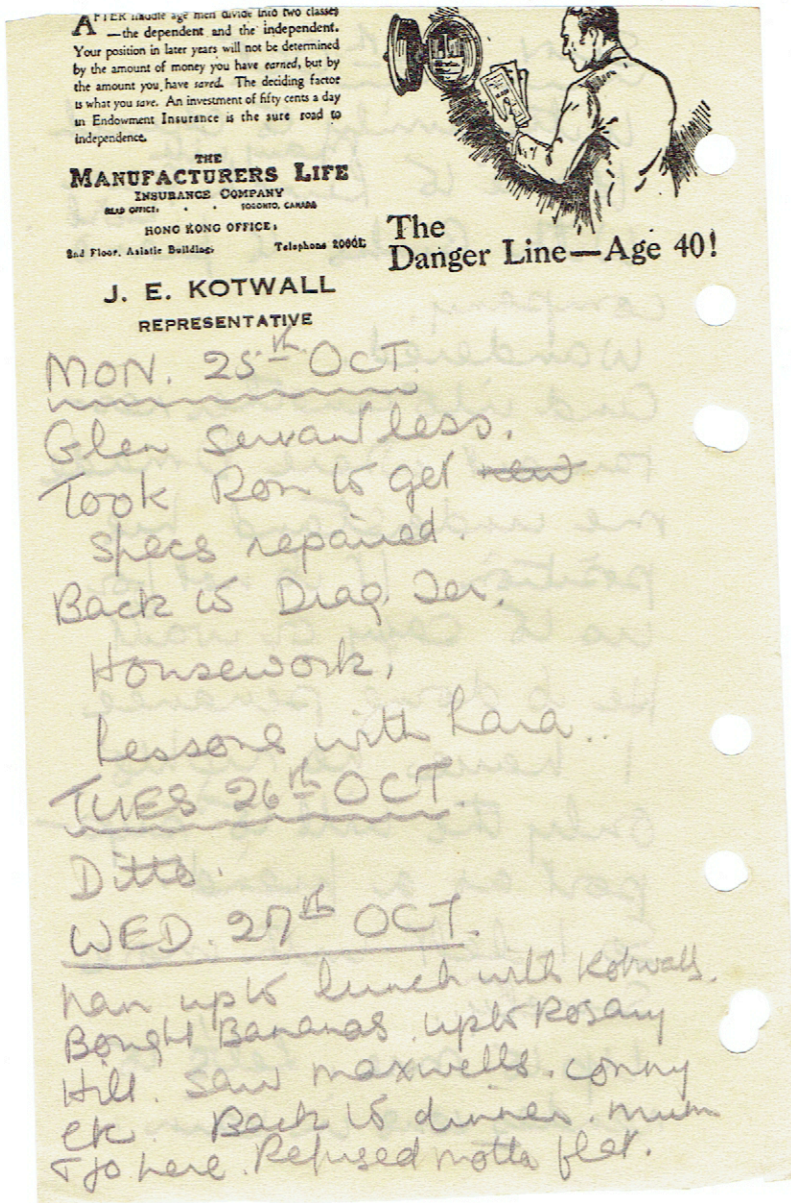 AFTER middle age men divide into two classes
—the dependent and the independent.
Your position in later years will not be determined
by the amount of money you have earned, but by
the amount you have saved. The deciding factor
is what you save. An investment of fifty cents a day
in Endowment Insurance is the sure road to
independence.
THE
MANUFACTURERS LIFE
INSURANCE COMPANY
HEAD OFFICE, TORONTO, CANADA
HONG KONG OFFICE:
2nd Floor, Asiatic Building; Telephone
J. E. KOTWALL
REPRESENTATIVE
The
Danger Line—Age 40!
MON. 25th OCT.
Glen servantless.
Took Ron to get new
specs repaired.
Back to Drag. Ter.
Housework,
Lessons with Lara..
TUES 26th OCT.
Ditto.
WED. 27th OCT.
Nan up to lunch with Kotwalls.
Bought Bananas. up to Rosary
Hill. Saw Maxwells. Conny
etc. Back to dinner. Mum
& Jo here. Refused Motta flat.